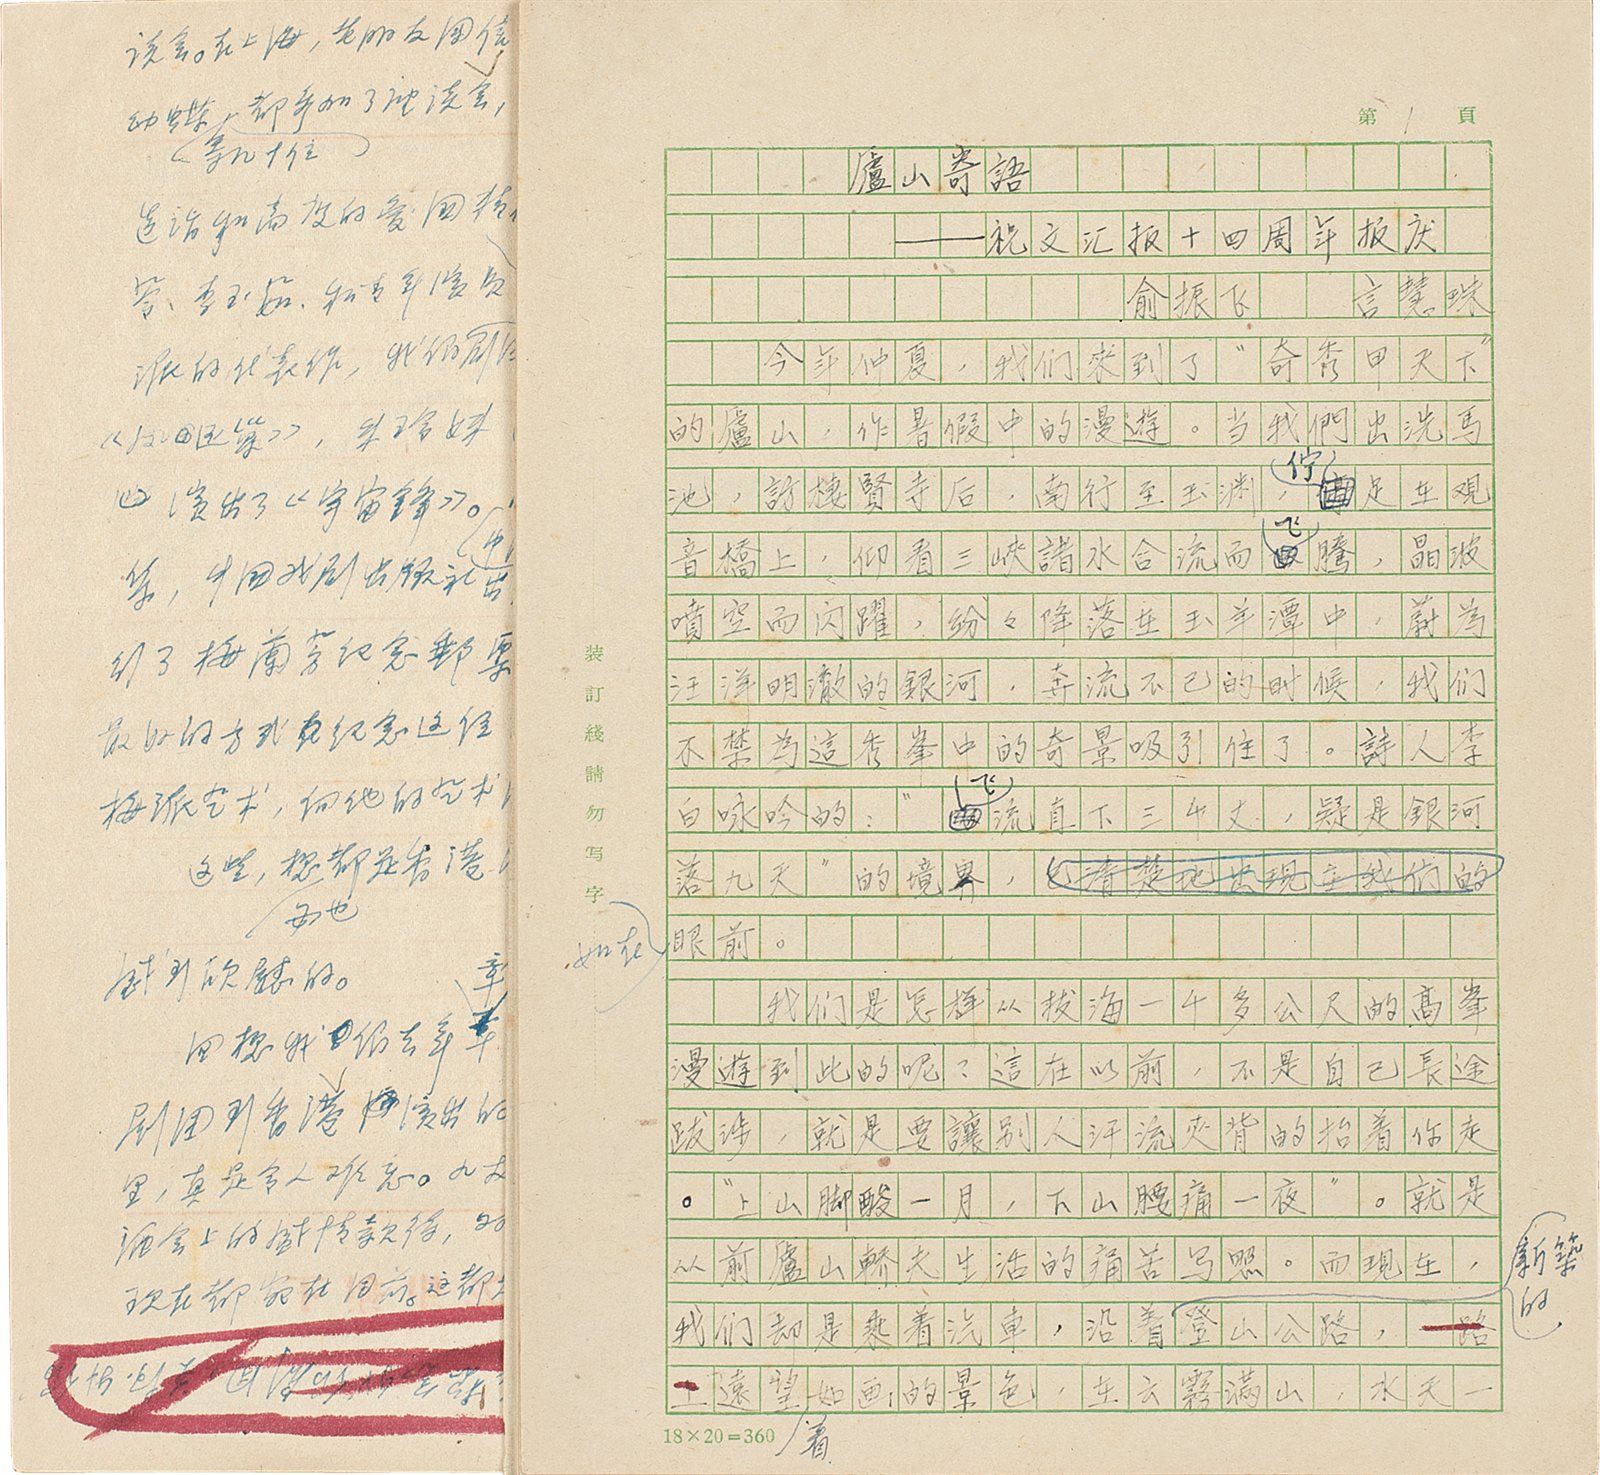 谈会。在上海，老朋友周信
幼蝶，都参加了座谈会，
造诣和高度的爱国精
誉、李玉茹、和青年演员
派的代表作，我们剧
演出了《宇宙锋》。
集，中国戏剧出版社出
行了梅兰芳纪念郵票
最好的方式来纪念这位
梅派艺术，向他的艺术
这些，想都是香港
感到欣慰的。
回想我们去年
剧团到香港演出的
里，真是令人难忘。
酒会上的盛情款待，
现在都宛在目前。这都
第1頁
廬山寄語
——祝文汇报十四周年报庆
俞振飞 言慧珠
今年仲夏，我们來到了“奇秀甲天下”
的廬山，作暑假中的漫遊。当我們出洗馬
池，訪棲賢寺后，南行至玉渊，佇足在观
音橋上，仰看三峽諸水合流而飞騰，晶波
噴空而闪躍，紛々降落在玉羊潭中，蔚為
汪洋明澈的銀河，奔流不已的时候，我们
不禁為這秀峯中的奇景吸引住了。詩人李
白咏吟的：“飞流直下三千丈，疑是銀河
落九天”的境界，清楚地出現在我们的
如在眼前。
我们是怎样从拔海一千多公尺的高峯
漫遊到此的呢？這在以前，不是自己長途
跋涉，就是要讓別人汗流夾背的抬着你走
。“上山脚酸一月，下山腰痛一夜”。就是
以前廬山轎夫生活的痛苦写照。而現在，
新築的
我们却是乘着汽車，沿着登山公路，一路
上遠望如画的景色，在云霧满山，水天一
着
装訂綫請勿写字
18×20=360